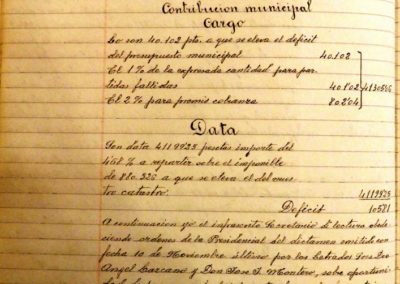 Contribucion municipal
Cargo
Lo son 40.102 pts. a que se eleva el deficit
del presupuesto municipal 40.102
El 1 % de la expresada cantidad para par-
tidas fallidas
El 2 % para premio cobranza 802'04
Data
Son data 41198'25 pesetas importe del
4'68 % a repartir sobre el imponible
de 880.325 a que se eleva el del nues-
tro catastro. 41198'25
Deficit
A continuacion yo el infrascrito Secretario di lectura obede-
ciendo ordenes de la Presidencia del dictamen emitido con
fecha 10 de Noviembre último por los letrados Dons Don
Angel Carcano y Don Jose J. Montero, sobre